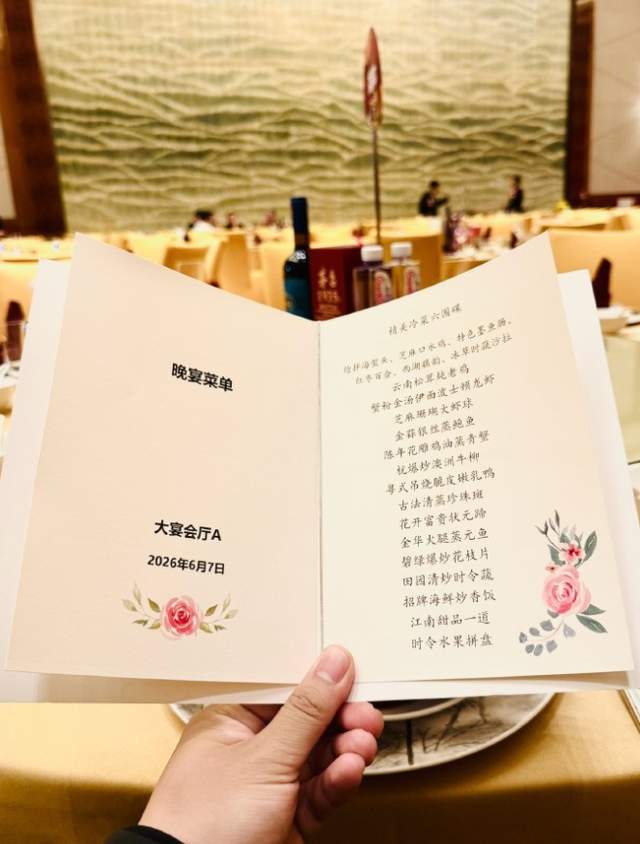 晚宴菜单
大宴会厅A
2026年6月7日
精美冷菜六围碟
捞拌海蜇头、芝麻口水鸡、特色墨鱼肠、
红枣百合、西湖藕韵、冰草时蔬沙拉
云南松茸炖老鸡
蟹粉金汤伊面波士顿龙虾
芝麻珊瑚大虾球
金蒜银丝蒸鲍鱼
陈年花雕鸡油蒸青蟹
杭爆炒澳洲牛柳
粤式吊烧脆皮嫩乳鸭
古法清蒸珍珠斑
花开富贵状元蹄
金华火腿蒸元鱼
碧绿爆炒花枝片
田园清炒时令蔬
招牌海鲜炒香饭
江南甜品一道
时令水果拼盘